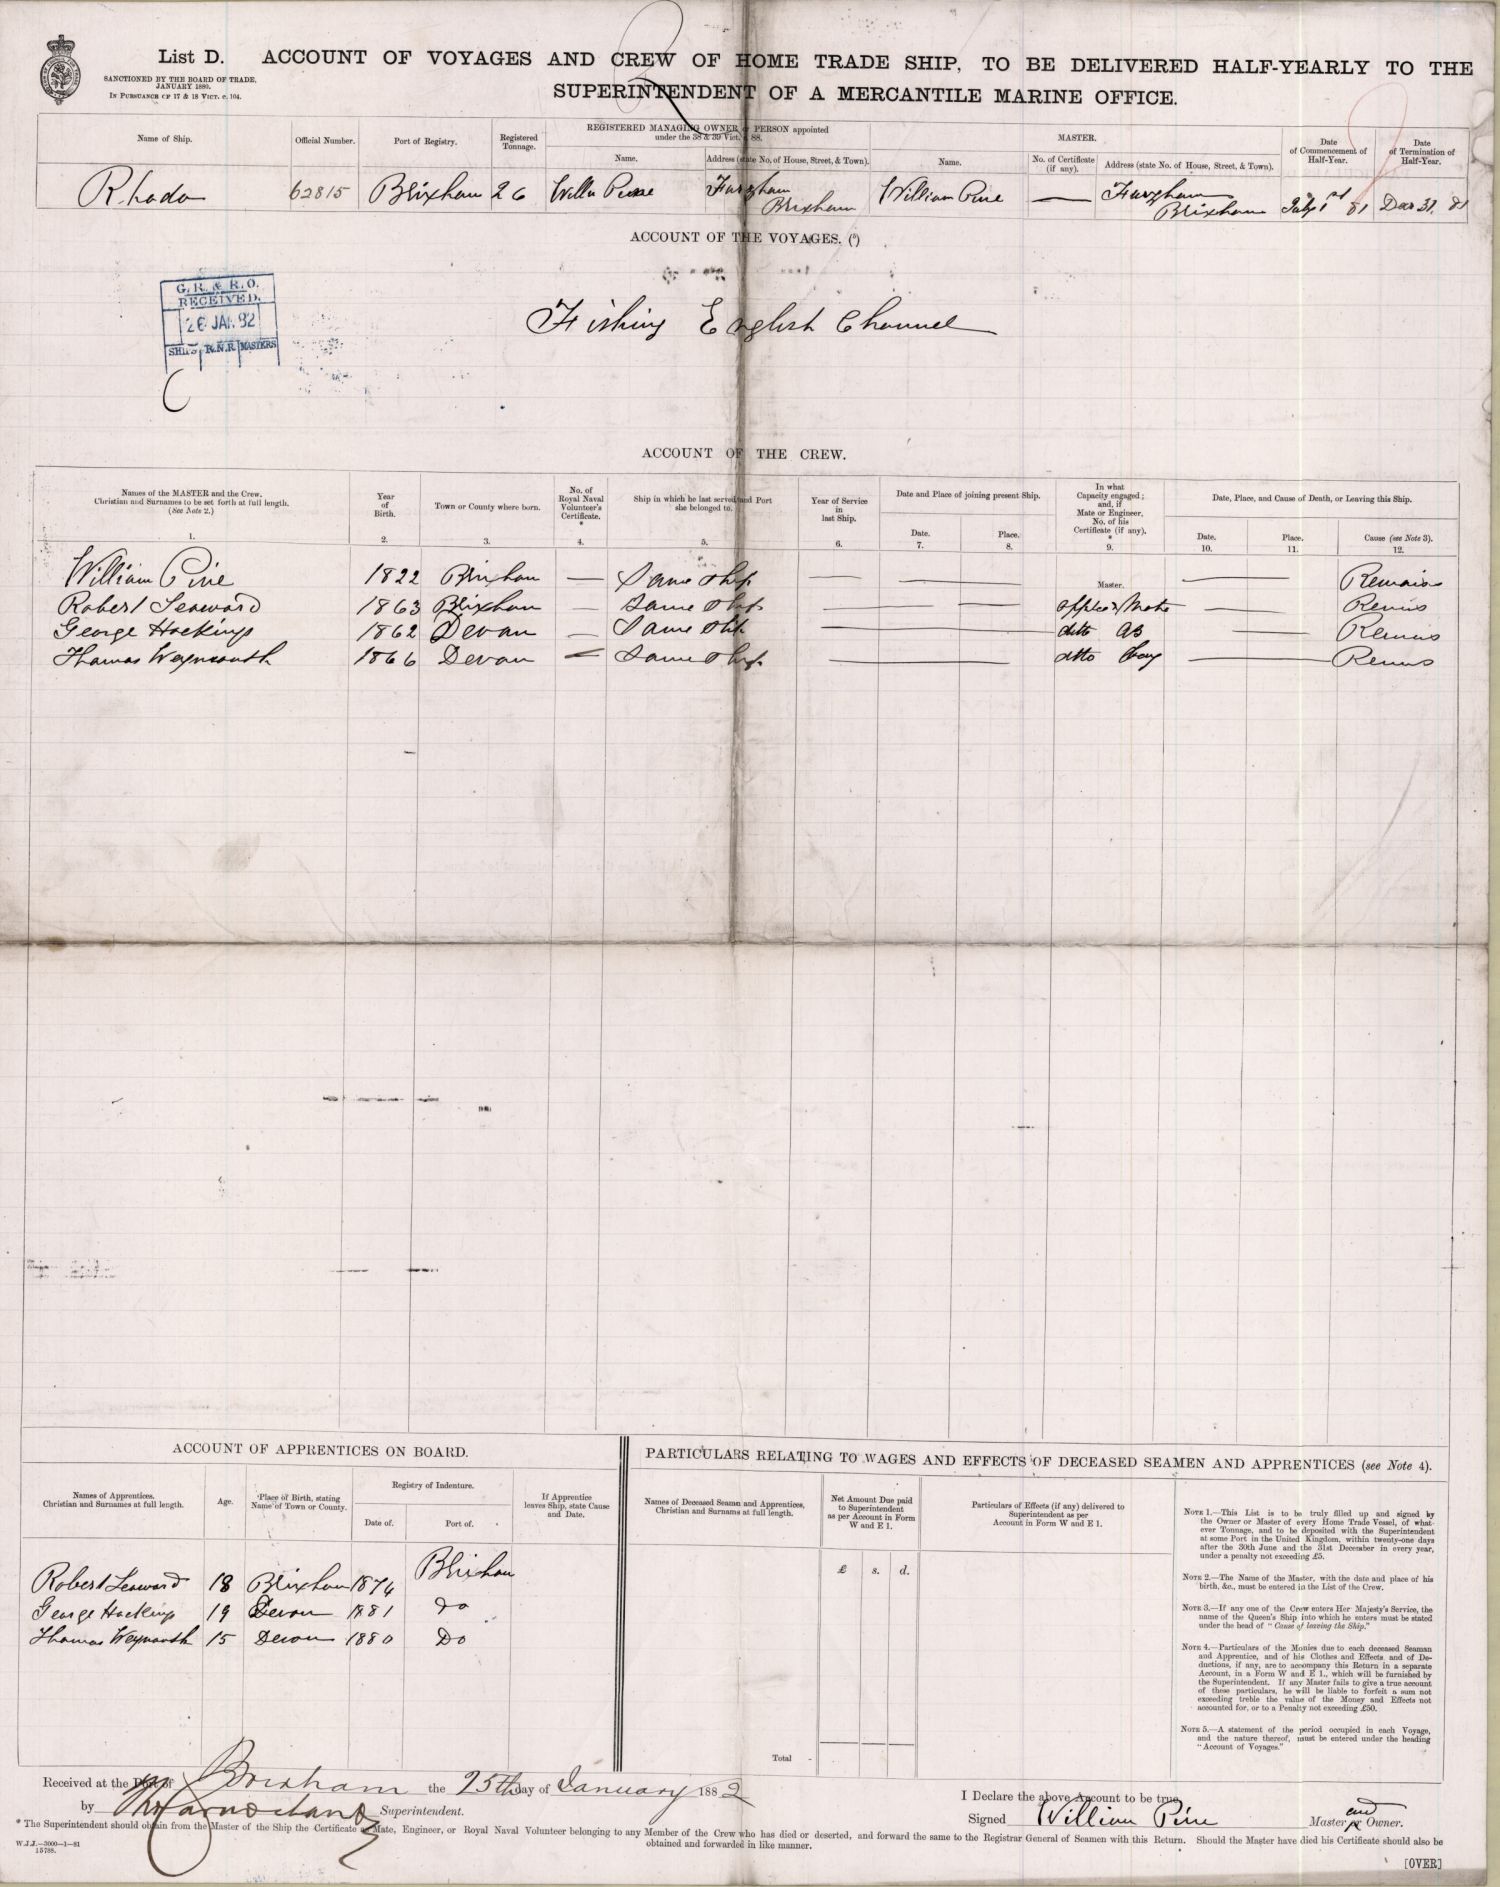 List D. ACCOUNT OF VOYAGES AND CREW OF HOME TRADE SHIP, TO BE DELIVERED HALF-YEARLY TO THE
SUPERINTENDENT OF A MERCANTILE MARINE OFFICE.
SANCTIONED BY THE BOARD OF TRADE,
JANUARY 1880.
IN PURSUANCE OF 17 & 18 VICT. c. 104.
Name of Ship.
Official Number.
Port of Registry.
Registered Tonnage.
REGISTERED MANAGING OWNER or PERSON appointed
under the 38 & 39 Vict. c. 88.
Name.
Address (state No. of House, Street, & Town).
MASTER.
Name.
No. of Certificate (if any).
Address (state No. of House, Street, & Town).
Date of Commencement of Half-Year.
Date of Termination of Half-Year.
Rhoda 62815 Brixham 26 Willm Pine Furzham Brixham William Pine — Furzham Brixham July 1st 81 Dec 31. 81
ACCOUNT OF THE VOYAGES. (5)
G. R. & R. O.
RECEIVED.
26 JAN. 82
SHIPS R.N.R MASTERS
Fishing English Channel
ACCOUNT OF THE CREW.
Names of the MASTER and the Crew.
Christian and Surnames to be set forth at full length.
(See Note 2.)
1.
Year of Birth.
2.
Town or County where born.
3.
No. of Royal Naval Volunteer's Certificate.
*
4.
Ship in which he last served, and Port she belonged to.
5.
Year of Service in last Ship.
6.
Date and Place of joining present Ship.
Date.
7.
Place.
8.
In what Capacity engaged; and, if Mate or Engineer, No. of his Certificate (if any).
*
9.
Date, Place, and Cause of Death, or Leaving this Ship.
Date.
10.
Place.
11.
Cause (see Note 3).
12.
William Pine 1822 Brixham — Same Ship — — Master. — Remain
Robert Seaward 1863 Brixham — Same Ship — — — Mate — Remains
George Hockings 1862 Devon — Same Ship — — ditto AB — — Remains
Thomas Weymouth 1866 Devon — Same Ship — — ditto boy — Remains
ACCOUNT OF APPRENTICES ON BOARD.
Names of Apprentices,
Christian and Surnames at full length.
Age.
Place of Birth, stating
Name of Town or County.
Registry of Indenture.
Date of.
Port of.
If Apprentice
leaves Ship, state Cause
and Date.
Robert Seaward 18 Brixham 1874 Brixham
George Hockings 19 Devon 1881 Do
Thomas Weymouth 15 Devon 1880 Do
PARTICULARS RELATING TO WAGES AND EFFECTS OF DECEASED SEAMEN AND APPRENTICES (see Note 4).
Names of Deceased Seamn and Apprentices,
Christian and Surnams at full length.
Net Amount Due paid
to Superintendent
as per Account in Form
W and E 1.
£ s. d.
Particulars of Effects (if any) delivered to
Superintendent as per
Account in Form W and E 1.
Total
NOTE 1.—This List is to be truly filled up and signed by
the Owner or Master of every Home Trade Vessel, of what-
ever Tonnage, and to be deposited with the Superintendent
at some Port in the United Kingdom, within twenty-one days
after the 30th June and the 31st December in every year,
under a penalty not exceeding £5.
NOTE 2.—The Name of the Master, with the date and place of his
birth, &c., must be entered in the List of the Crew.
NOTE 3.—If any one of the Crew enters Her Majesty's Service, the
name of the Queen's Ship into which he enters must be stated
under the head of "Cause of leaving the Ship."
NOTE 4.—Particulars of the Monies due to each deceased Seaman
and Apprentice, and of his Clothes and Effects and of De-
ductions, if any, are to accompany this Return in a separate
Account, in a Form W and E 1., which will be furnished by
the Superintendent. If any Master fails to give a true account
of these particulars, he will be liable to forfeit a sum not
exceeding treble the value of the Money and Effects not
accounted for, or to a Penalty not exceeding £50.
NOTE 5.—A statement of the period occupied in each Voyage,
and the nature thereof, must be entered under the heading
"Account of Voyages."
Received at the Port of Brixham the 25th day of January 1882
by Superintendent.
I Declare the above Account to be true,
Signed William Pine Master and or Owner.
* The Superintendent should obtain from the Master of the Ship the Certificate of Mate, Engineer, or Royal Naval Volunteer belonging to any Member of the Crew who has died or deserted, and forward the same to the Registrar General of Seamen with this Return. Should the Master have died his Certificate should also be
obtained and forwarded in like manner.
W.J.J.—3000—1—81
15788.
[OVER]